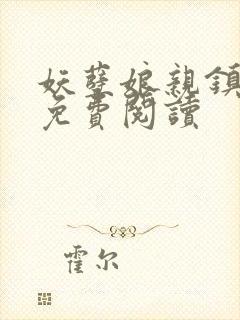 妖孽娘親鎮
免費閱讀
霍尔